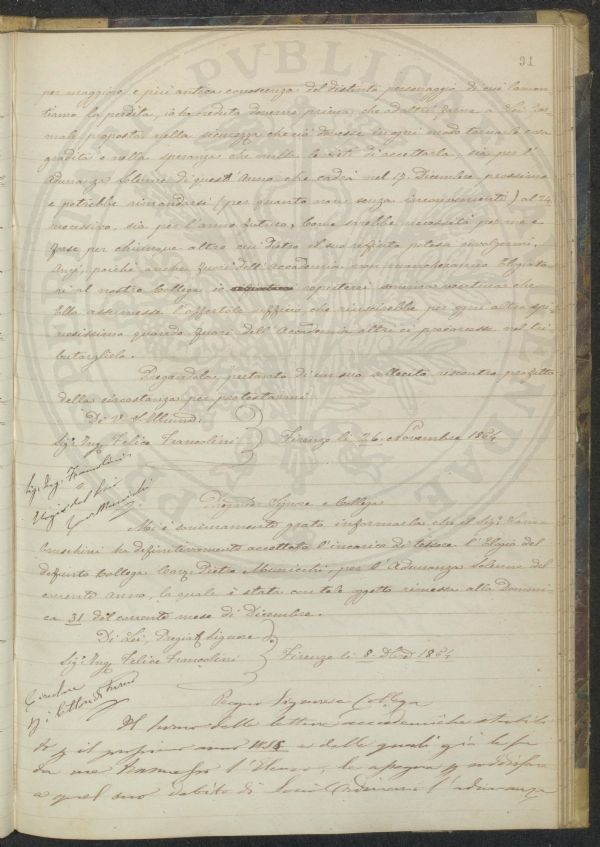 31
per maggiore e più antica conoscenza del distinto personaggio di cui lamen-
tiamo la perdita, io ho creduto doverne prima che ad altri, farne a Lei for-
male proposta nella sicurezza che ciò dovesse in ogni modo tornarle cosa
gradita e nella speranza che nulla le osti d'accettarla, sia per l'
Adunanza Solenne di quest'Anno che cadrà nel 17 Dicembre prossimo
e potrebbe rimandarsi (per quanto non senza inconvenienti) al 24
successivo, sia per l'anno futuro, come sarebbe necessità per me e
forse per chiunque altro cui dietro il suo rifiuto potessi rivolgermi.
Anzi, poiché anche fuori dell'Accademia non mancheranno Elogiato-
ri al nostro Collega io ripeterei somma ventura che
Ella assumesse l'affettuoso ufficio che riuscirebbe per ogni altro spi-
nosissimo quando fuori dell'Accademia altri ci precorresse nel tri-
butarglielo.
Pregandola pertanto di un suo sollecito riscontro profitto
della circostanza per protestarmi
Di V. S. Illma
Sig. Ing. Felice Francolini Firenze li 26 Novembre 1864
Sig. Ing. Francolini
Elogio del Cav.
Municchi
Pregiato Signore e Collega
Mi è sommamente grato informarla che il Sig. Lam-
bruschini ha definitivamente accettato l'incarico di tessere l'Elogio del
defunto Collega Cav. Pietro Municchi, per l'Adunanza Solenne del
corrente Anno, la quale è stata con tale oggetto rimessa alla Domeni-
ca 31 del corrente mese di Dicembre.
Di Lei, Pregiat. Signore
Sig. Ing. Felice Francolini Firenze li 8 Dbre 1864
Circolare
p. i Lettori di Turno
Pregmo Signore e Collega
Il turno delle letture accademiche stabili-
to p. il prossimo anno 1865 e delle quali già le fu
da me trasmesso l'Elenco, la appella p. soddisfare
a quel suo debito di Socio Ordinario l'adunanza